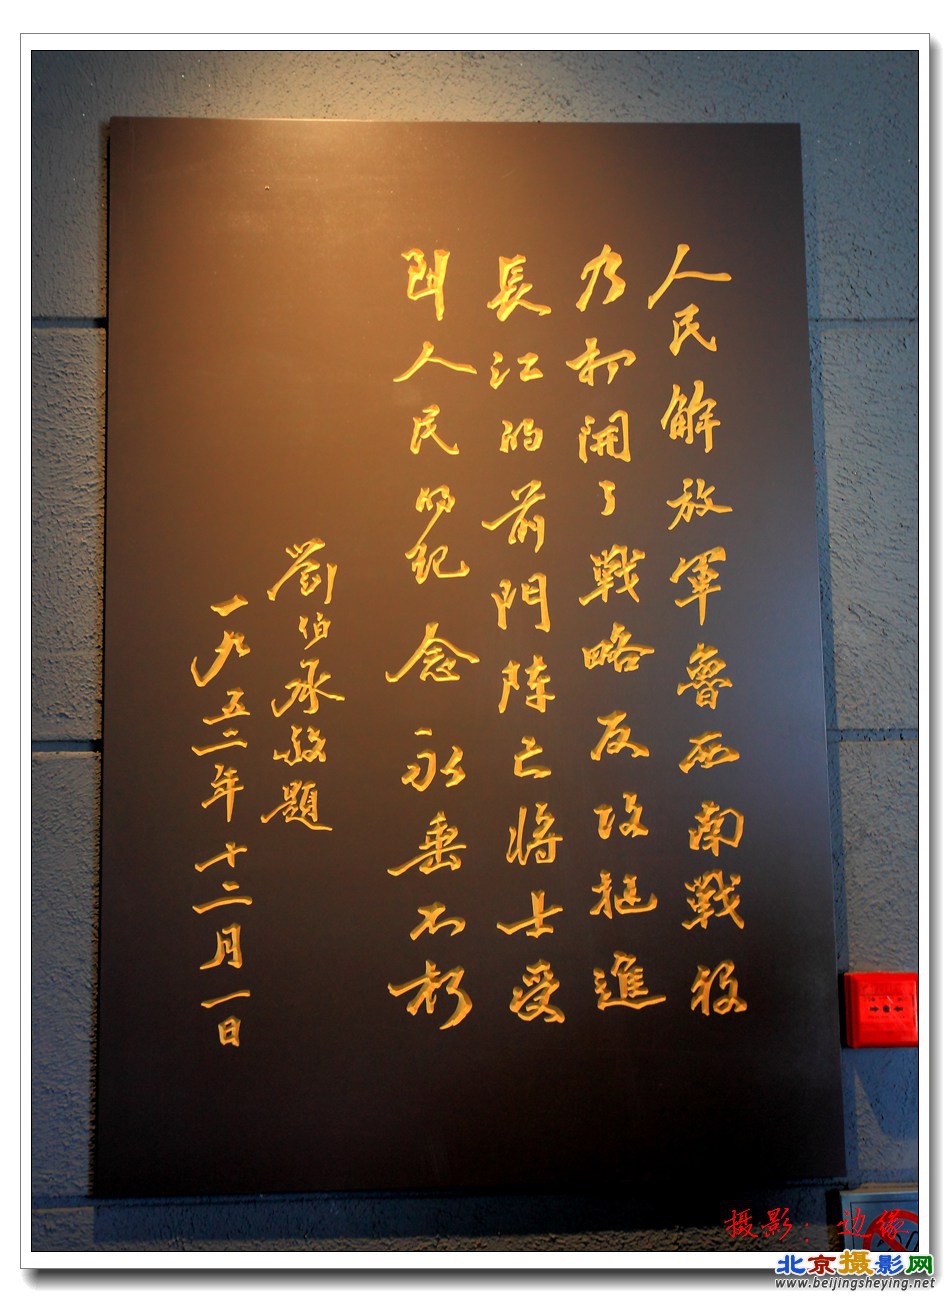 人民解放軍魯西南戰役
乃打開了戰略反攻挺進
長江的前門陣亡將士受
到人民的紀念永垂不朽
劉伯承敬題
一九五二年十二月一日
摄影：边缘
北京摄影网
www.beijingsheying.net